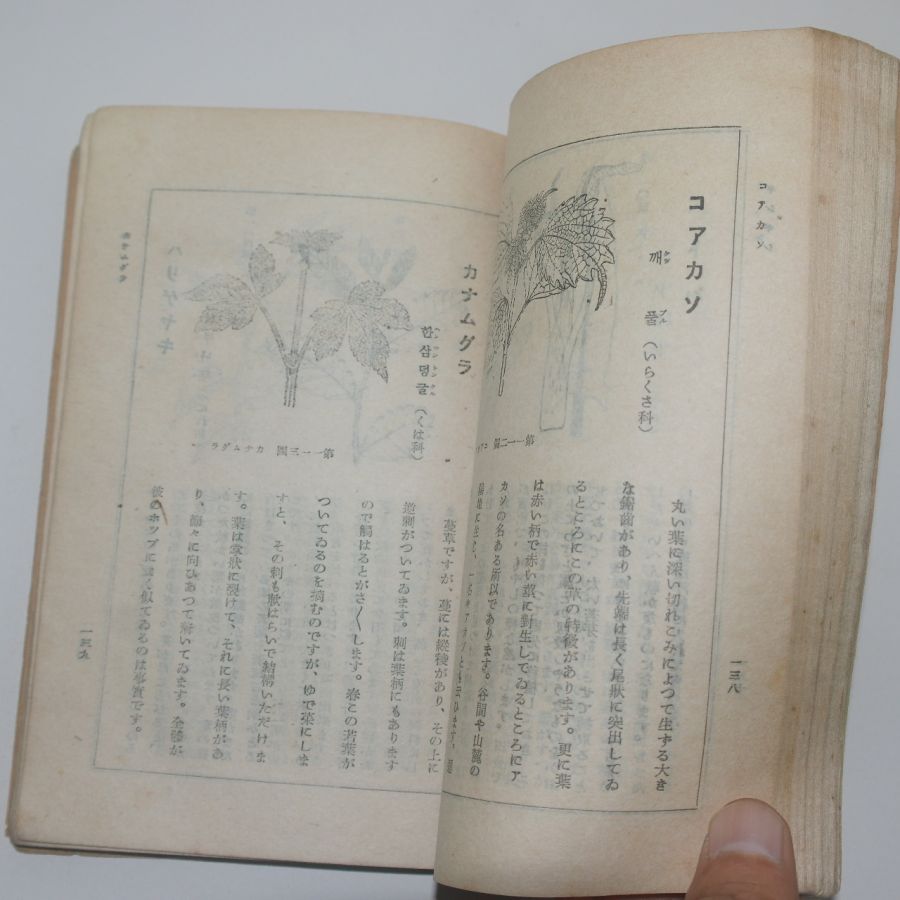 コアカソ
コアカソ
깨풀
プル
（いらくさ科）
第一一二圖
丸い葉に深い切れこみによつて生ずる大き
な鋸齒があり、先端は長く尾狀に突出してゐ
るところにこの草の特徴があります。更に葉
は赤い柄で赤い莖に對生してゐるところにア
カソの名ある所以であります。谷間や山麓の
一三八
カナムグラ
한삼덩굴
（くは科）
第一一三圖 カナムグラ
蔓草ですが、蔓には縱稜があり、その上に
逆刺がついてゐます。刺は葉柄にもあります
ので觸はるとがさ〱します。春この若葉が
ついてゐるのを摘むのですが、ゆで菜にしま
すと、その刺も軟はらいで結構いただけま
す。葉は掌狀に裂けて、それに長い葉柄があ
り、節々に向ひあつて付いてゐます。全體が
彼のホツプによく似てゐるのは事實です。
一三九